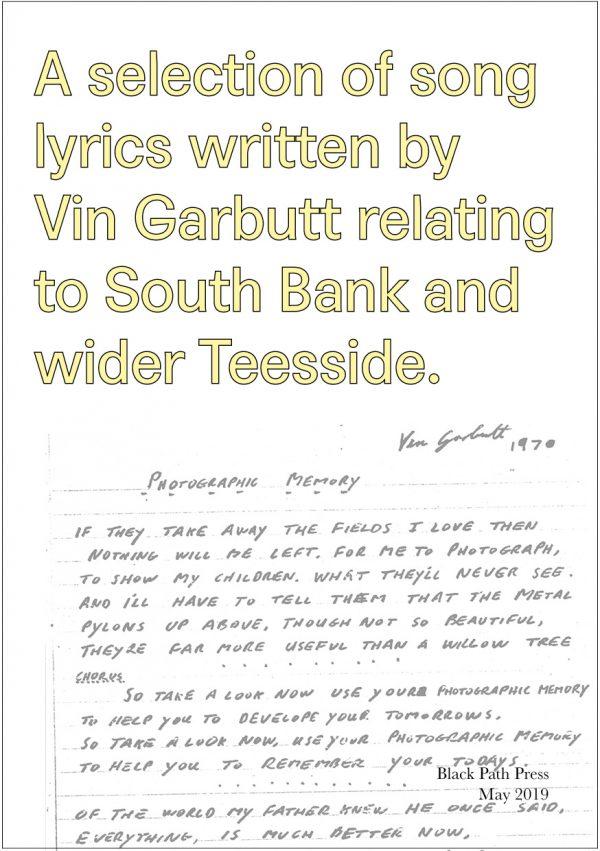 A selection of song
lyrics written by
Vin Garbutt relating
to South Bank and
wider Teesside.
Vin Garbutt 1970
PHOTOGRAPHIC MEMORY
IF THEY TAKE AWAY THE FIELDS I LOVE THEN
NOTHING WILL BE LEFT. FOR ME TO PHOTOGRAPH,
TO SHOW MY CHILDREN. WHAT THEY'LL NEVER SEE.
AND I'LL HAVE TO TELL THEM THAT THE METAL
PYLONS UP ABOVE, THOUGH NOT SO BEAUTIFUL,
THEY'RE FAR MORE USEFUL THAN A WILLOW TREE
CHORUS
SO TAKE A LOOK NOW USE YOUR PHOTOGRAPHIC MEMORY
TO HELP YOU TO DEVELOPE YOUR TOMORROWS.
SO TAKE A LOOK NOW, USE YOUR PHOTOGRAPHIC MEMORY
TO HELP YOU TO REMEMBER YOUR TODAYS.
Black Path Press
May 2019
OF THE WORLD MY FATHER KNEW HE ONCE SAID,
EVERYTHING, IS MUCH BETTER NOW,